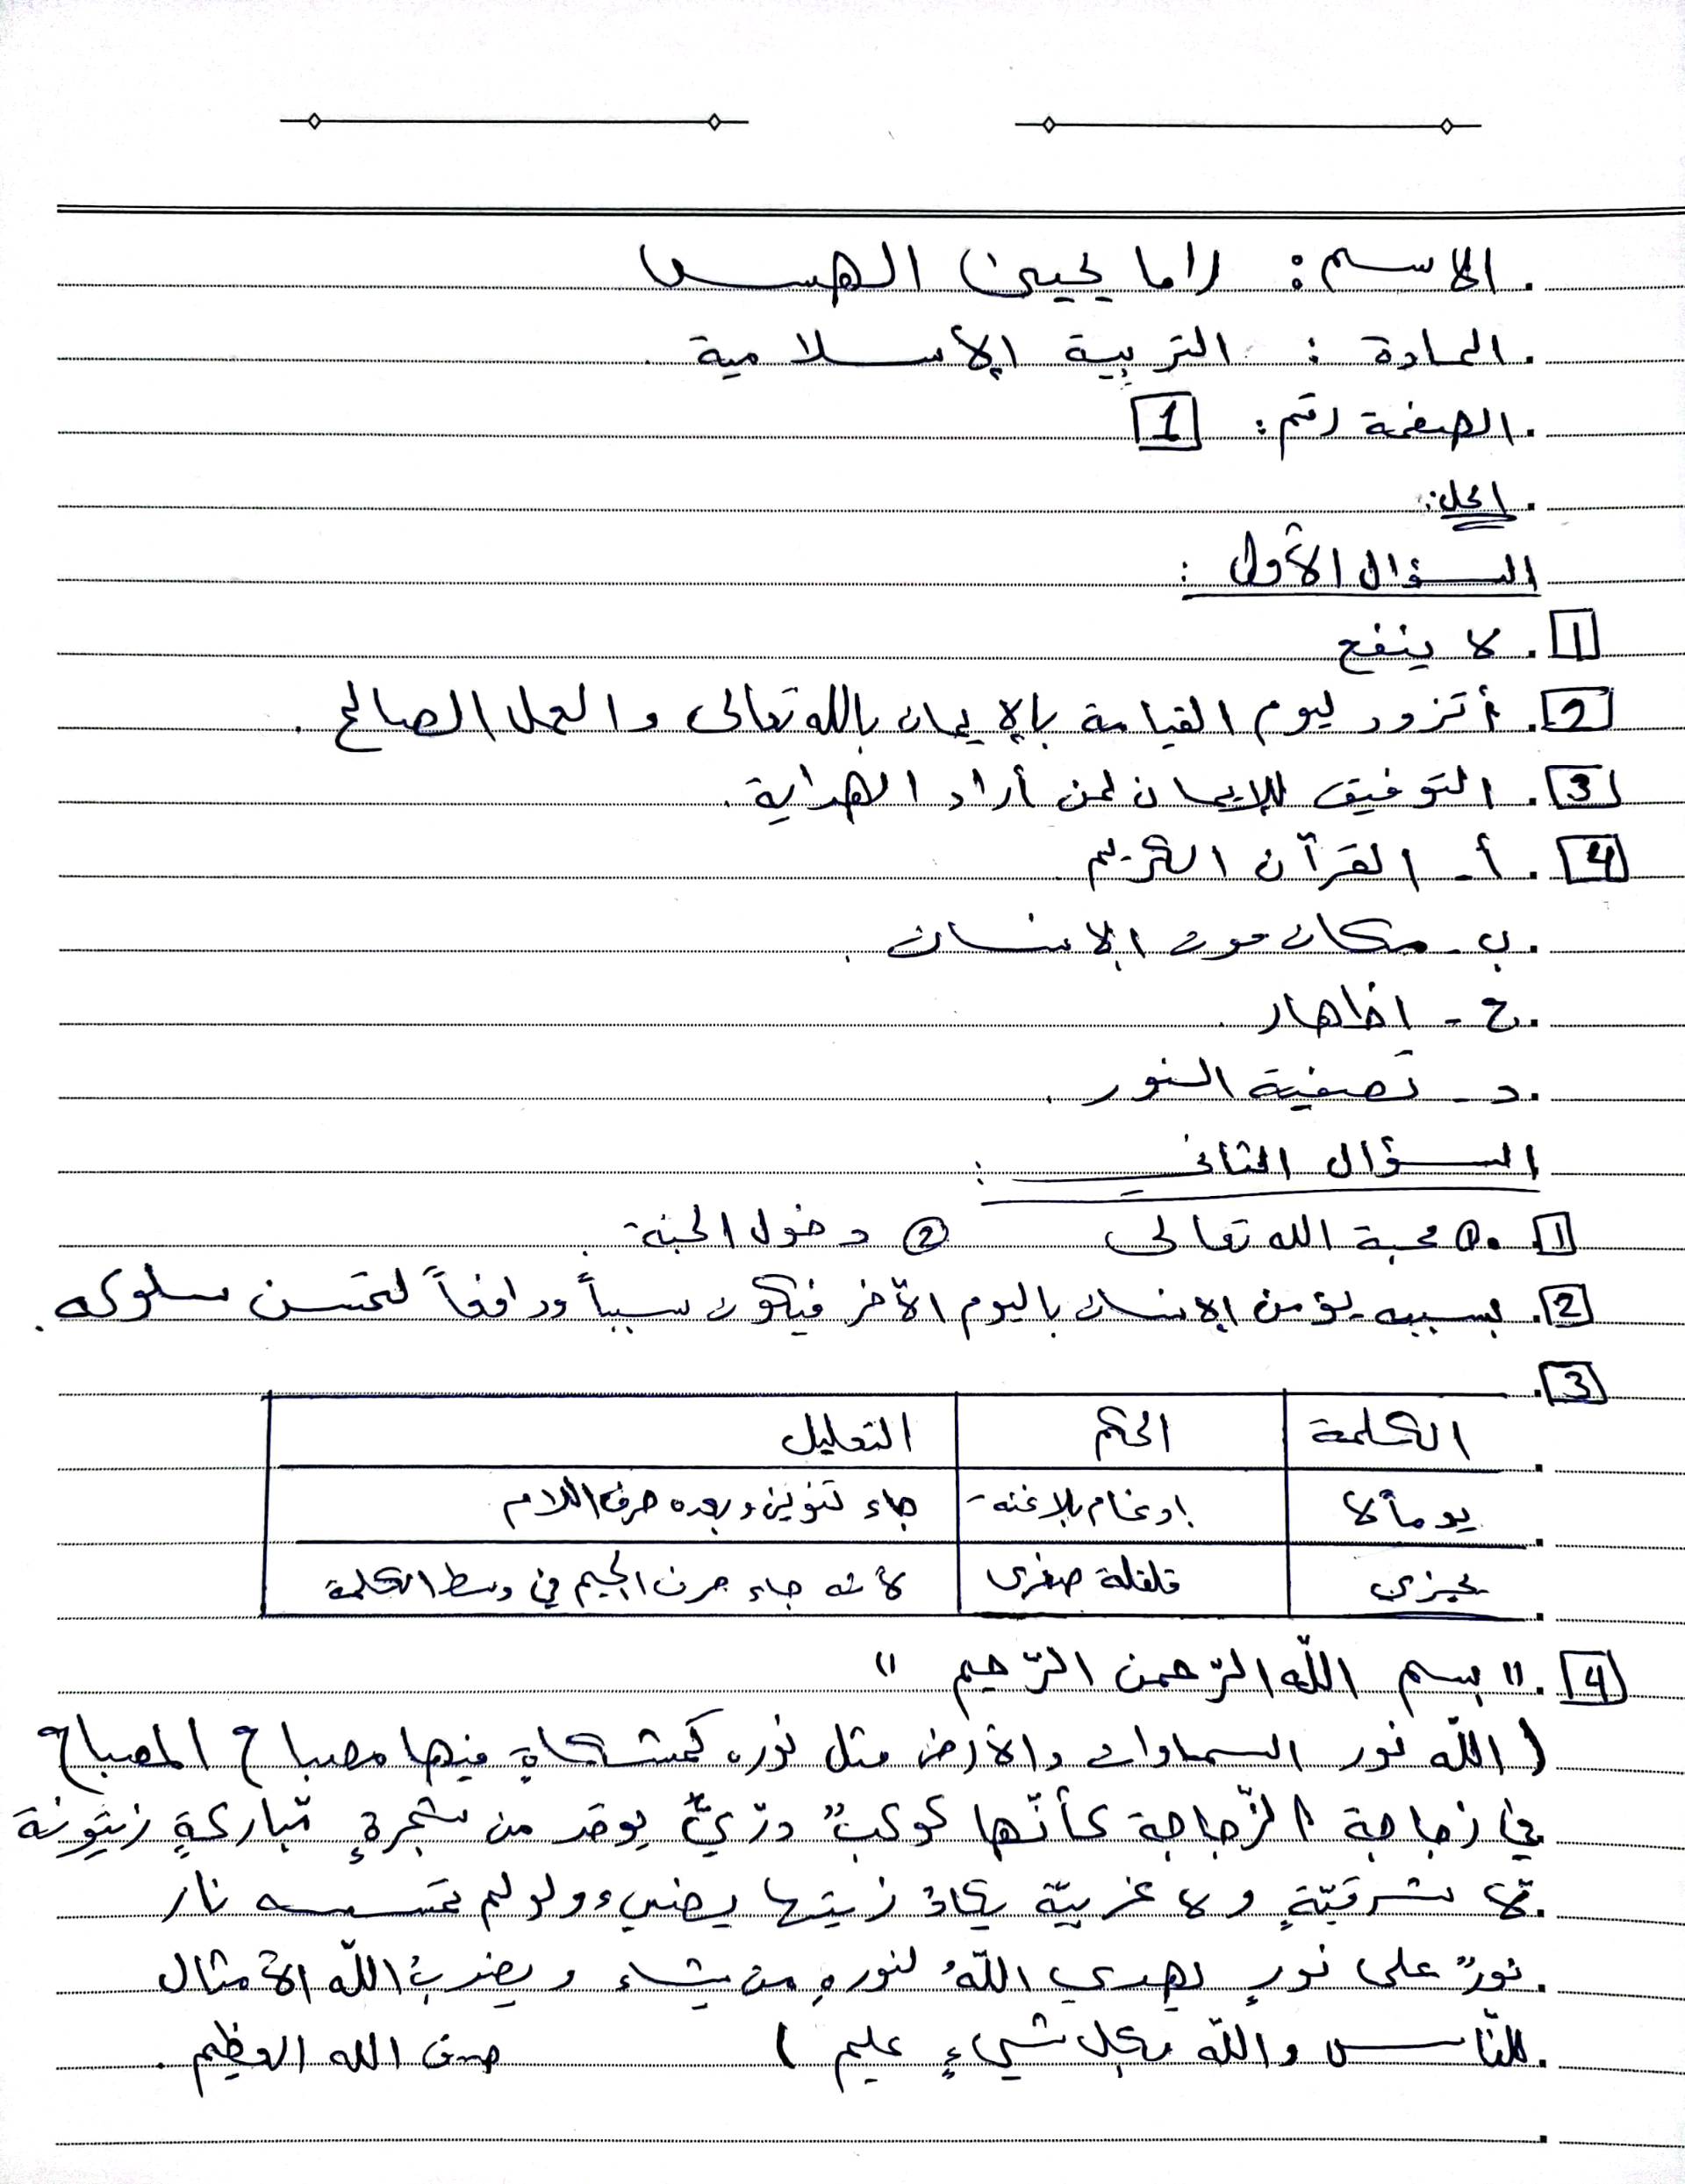 الاسم: راما يحيى
المادة: التربية الإسلامية
الصفحة رقم: 1
الحل:
السؤال الأول:
1. لا ينفع
2. أتزود ليوم القيامة بالإيمان بالله تعالى والعمل الصالح.
3. التوفيق للإيمان لمن أراد الهداية.
4. أ- القرآن الكريم
ب- مكان موت الإنسان.
ج- اظهار
د- تصفية النور.
السؤال الثاني:
1. ① محبة الله تعالى ② دخول الجنة.
2. بسببه يؤمن الإنسان باليوم الآخر فيكون سبباً ودافعاً لتحسن سلوكه.
3.
الكلمة الحكم التعليل
يوماً لا إدغام بلا غنة جاء تنوين وبعده حرف اللام
يجزي قلقلة صغرى لأنه جاء حرف الجيم في وسط الكلمة
4. "بسم اللّه الرّحمن الرّحيم"
(اللّه نور السماوات والأرض مثل نوره كمشكاةٍ فيها مصباح المصباح
في زجاجة الزّجاجة كأنّها كوكبٌ درّيٌّ يوقد من شجرةٍ مّباركةٍ زيتونة
لّا شرقيّةٍ ولا غربيّة يكاد زيتها يضيء ولو لم تمسسه نار
نورٌ على نورٍ يهدي اللّهُ لنورهِ من يشاء ويضربُ اللّه الأمثال
للنّاس واللّه بكل شيءٍ عليم) صدق الله العظيم.